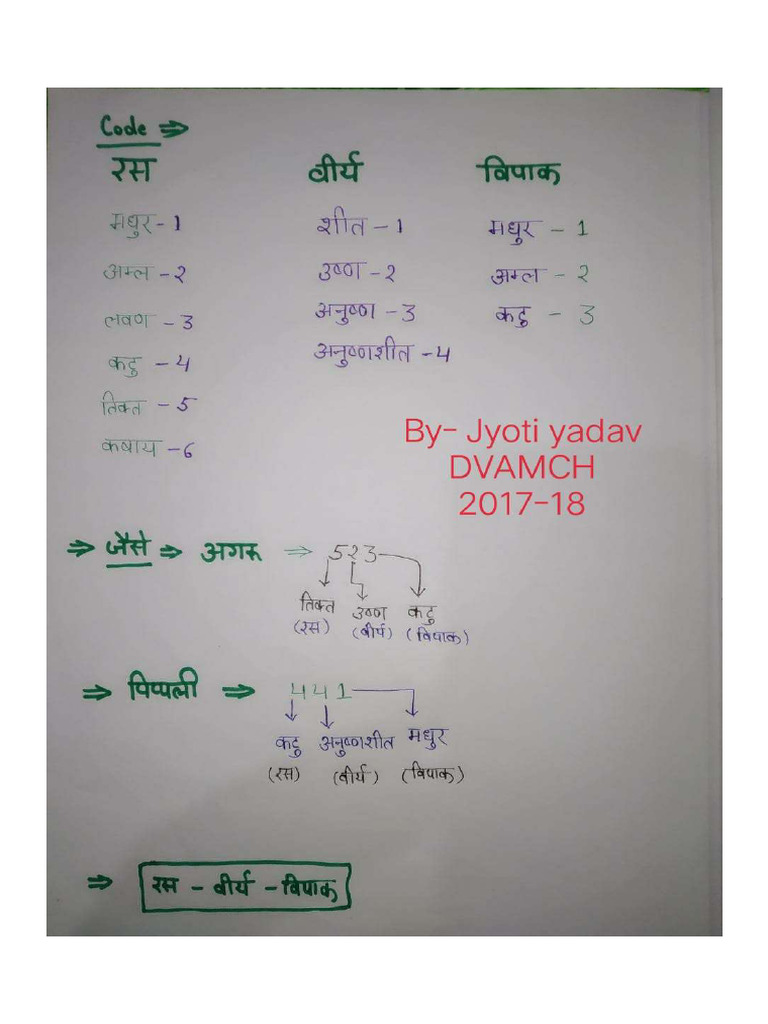 Code ⇒
रस वीर्य विपाक
मधुर - 1 शीत - 1 मधुर - 1
अम्ल - 2 उष्ण - 2 अम्ल - 2
लवण - 3 अनुष्ण - 3 कटु - 3
कटु - 4 अनुष्णशीत - 4
तिक्त - 5
कषाय - 6
By- Jyoti yadav
DVAMCH
2017-18
⇒ जैसे ⇒ अगरू ⇒ 523
तिक्त उष्ण कटु
(रस) (वीर्य) (विपाक)
⇒ पिप्पली ⇒ 441
कटु अनुष्णशीत मधुर
(रस) (वीर्य) (विपाक)
⇒ रस - वीर्य - विपाक